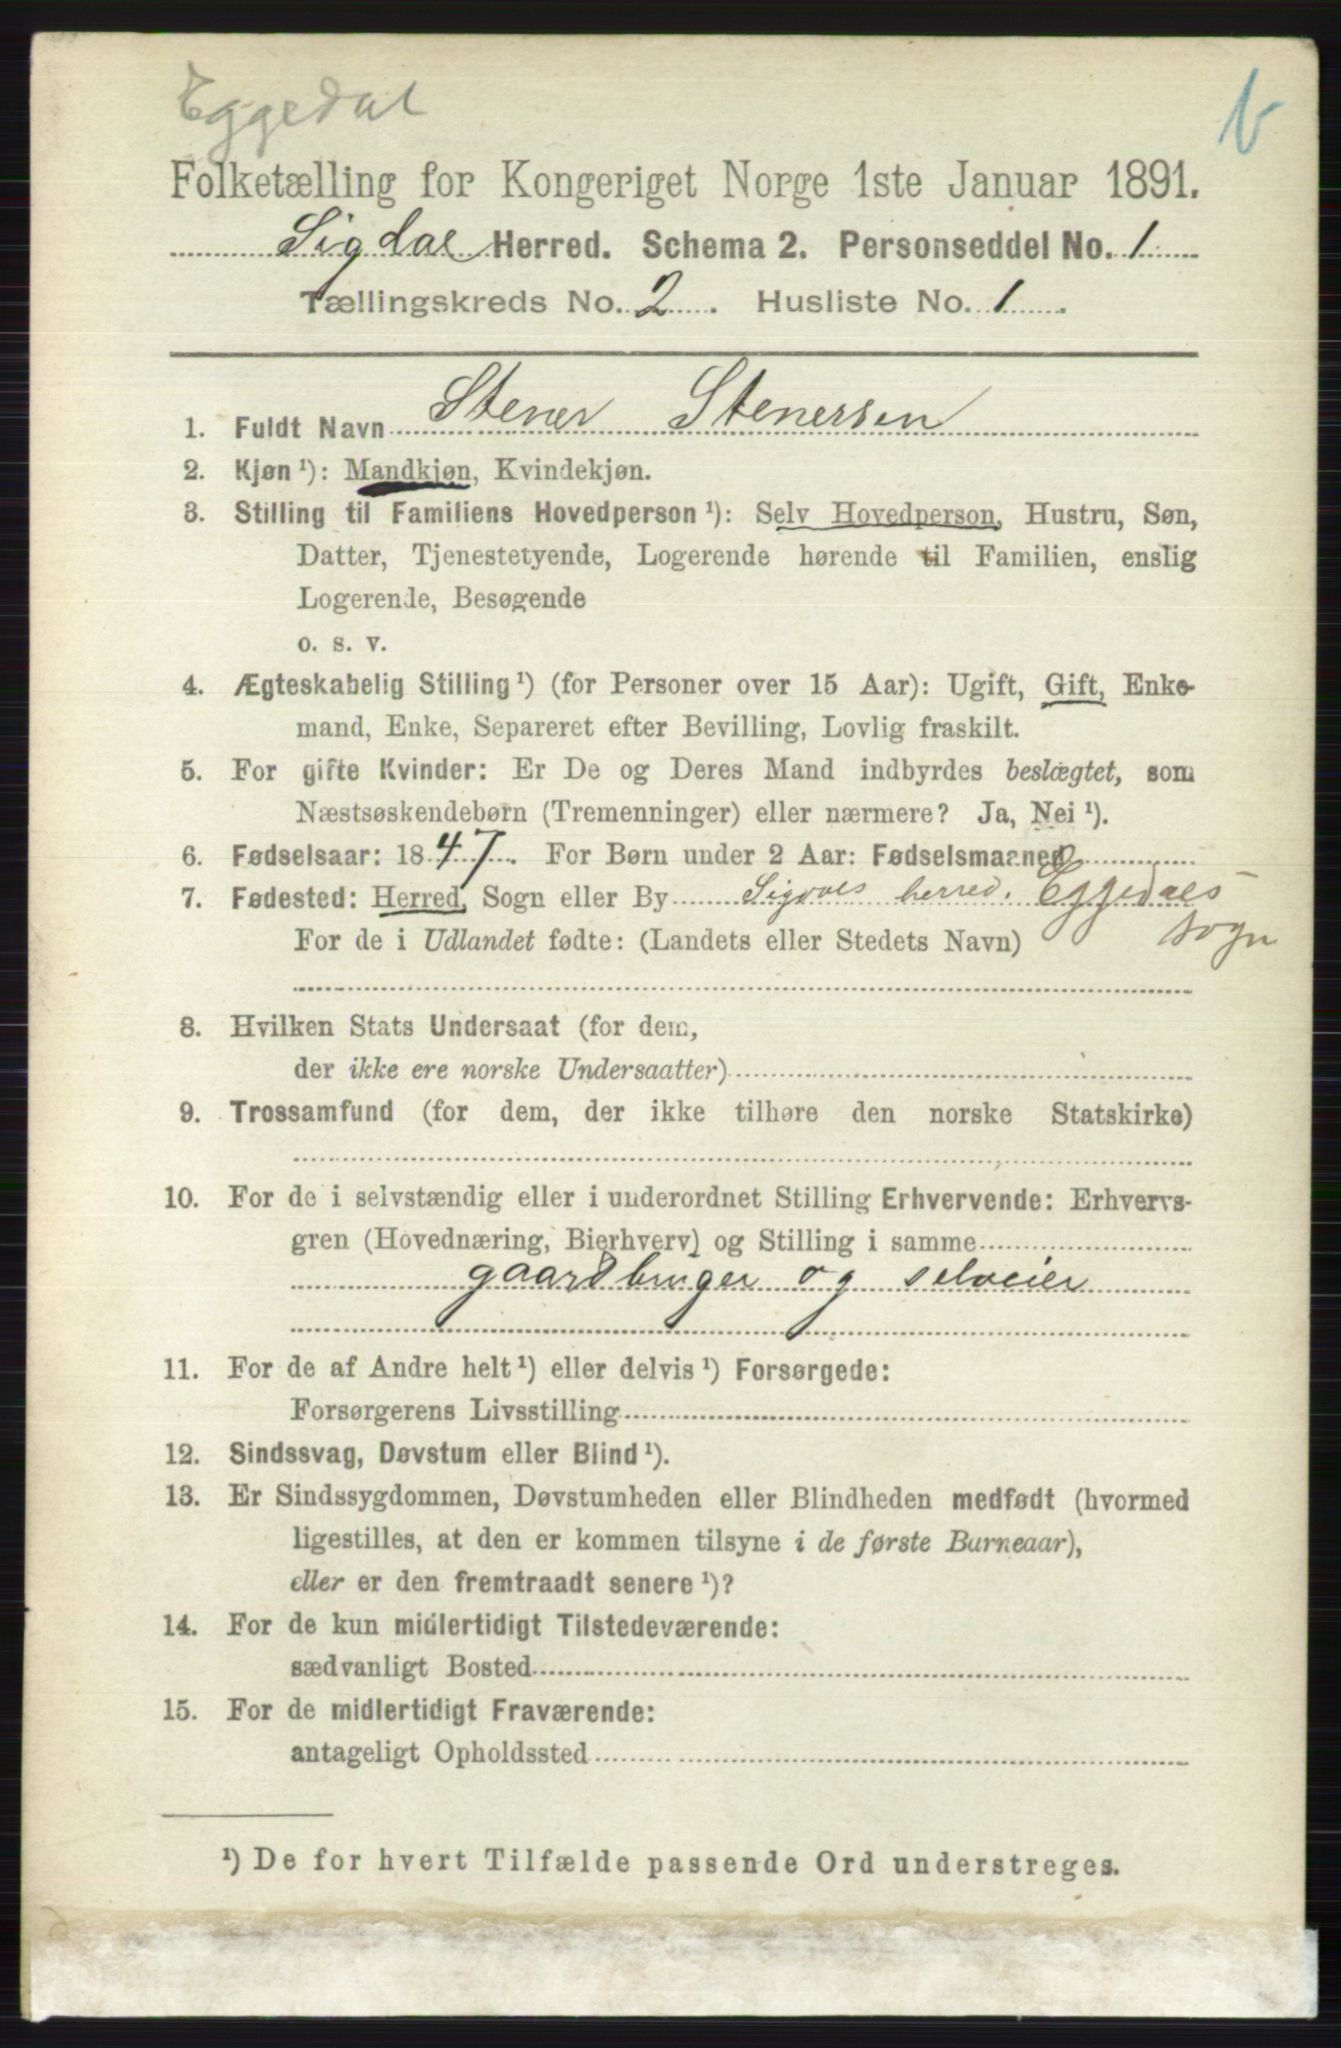 Eggedal
b
Folketælling for Kongeriget Norge 1ste Januar 1891.
Sigdal Herred. Schema 2. Personseddel No. 1
Tællingskreds No. 2. Husliste No. 1.
1. Fuldt Navn Stener Stenersen
2. Kjøn ¹): Mandkjøn, Kvindekjøn.
3. Stilling til Familiens Hovedperson ¹): Selv Hovedperson, Hustru, Søn,
Datter, Tjenestetyende, Logerende hørende til Familien, enslig
Logerende, Besøgende
o. s. v.
4. Ægteskabelig Stilling ¹) (for Personer over 15 Aar): Ugift, Gift, Enke-
mand, Enke, Separeret efter Bevilling, Lovlig fraskilt.
5. For gifte Kvinder: Er De og Deres Mand indbyrdes beslægtet, som
Næstsøskendebørn (Tremenninger) eller nærmere? Ja, Nei ¹).
6. Fødselsaar: 1847. For Børn under 2 Aar: Fødselsmaaned
7. Fødested: Herred, Sogn eller By Sigdals herred. Eggedals
sogn
For de i Udlandet fødte: (Landets eller Stedets Navn)
8. Hvilken Stats Undersaat (for dem,
der ikke ere norske Undersaatter)
9. Trossamfund (for dem, der ikke tilhøre den norske Statskirke)
10. For de i selvstændig eller i underordnet Stilling Erhvervende: Erhvervs-
gren (Hovednæring, Bierhverv) og Stilling i samme
gaardbruger og selveier
11. For de af Andre helt ¹) eller delvis ¹) Forsørgede:
Forsørgerens Livsstilling
12. Sindssvag, Døvstum eller Blind ¹).
13. Er Sindssygdommen, Døvstumheden eller Blindheden medfødt (hvormed
ligestilles, at den er kommen tilsyne i de første Barneaar),
eller er den fremtraadt senere ¹)?
14. For de kun midlertidigt Tilstedeværende:
sædvanligt Bosted
15. For de midlertidigt Fraværende:
antageligt Opholdssted
¹) De for hvert Tilfælde passende Ord understreges.